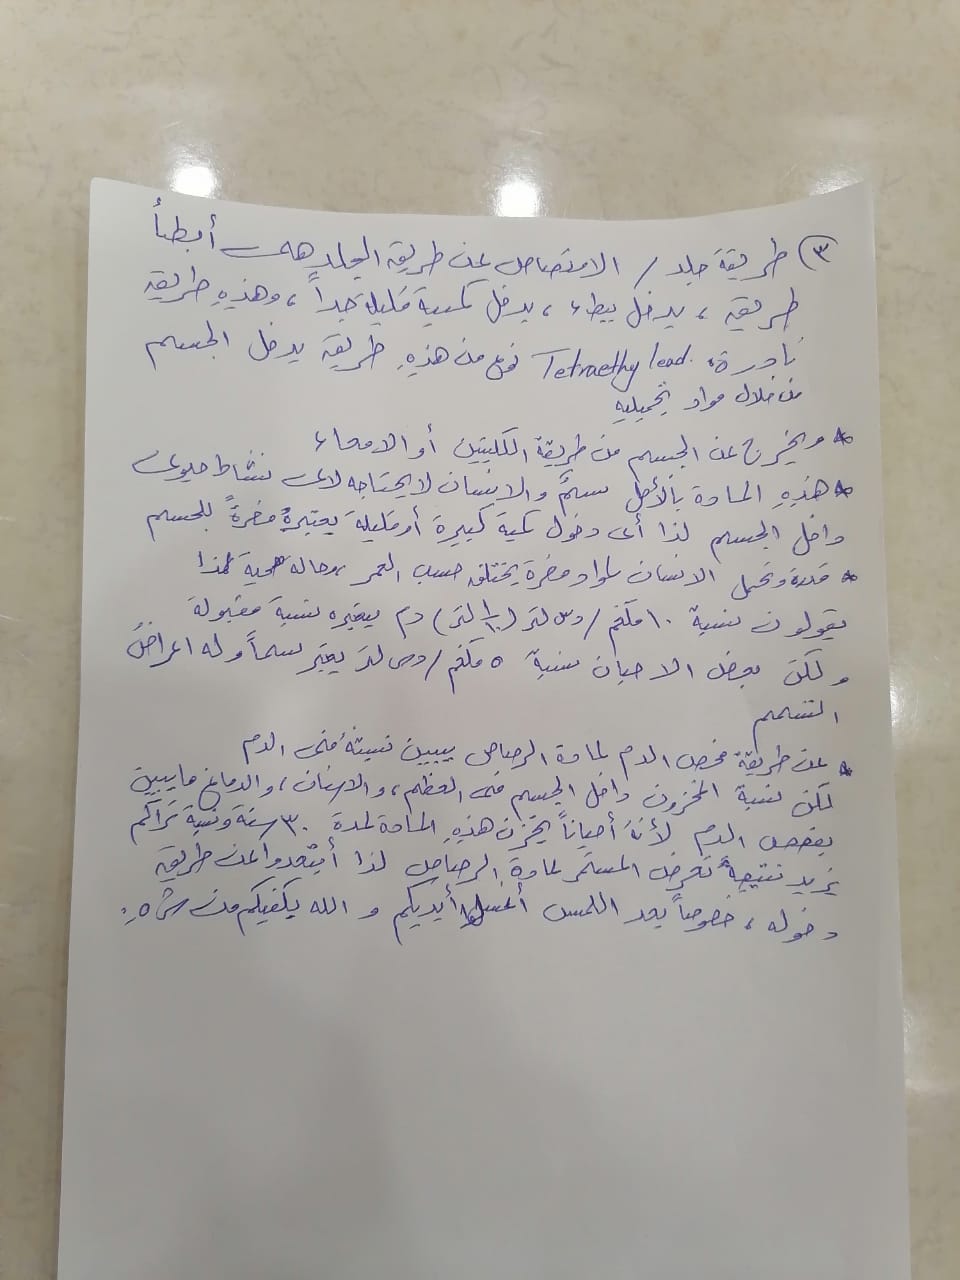 ٣) طريقة جلد / الامتصاص عن طريقه الجلد هي أبطأ
طريقه ، يدخل ببطء ، يدخل كمية قليله جداً ، وهذهِ طريقه
نادرة، Tetraethy lead نوع من هذهِ طريقه يدخل الجسم
من خلال مواد تجميليه
* ويخرج عن الجسم من طريقة الكليتين أو الامعاء
* هذهِ المادة بالأصل سمٌ والانسان لا يحتاجه لاى نشاط حيوى
داخل الجسم لذا أى دخول كمية كبيرة أو قليلة يعتبرهُ مضرةً للجسم
* قدرة وتحمل الانسان لمواد مضرة يختلف حسب العمر وحالة صحية لهذا
يقولون نسبة ١٠ مكغم / دس لتر (١/١٠ لتر) دم يعتبره نسبة مقبولة
ولكن بعض الاحيان نسبة ٥ مكغم / دس لتر يعتبر سماً وله اعراضُ
التسمم
* عن طريقة فحص الدم لمادة الرصاص يبين نسبتهُ فى الدم
لكن نسبة المخزون داخل الجسم فى العظم ، والاسنان ، والدماغ ما يبين
بفحص الدم لأنهُ أحياناً يخزن هذهِ المادة لمدة ٣٠ سنة ونسبة تراكم
يزيد نتيجة تعرض المستمر لمادة الرصاص لذا أبتعدوا عن طريقه
دخوله ، خصوصاً بعد اللمس أغسلوا أيديكم و الله يكفيكم من شرهِ.